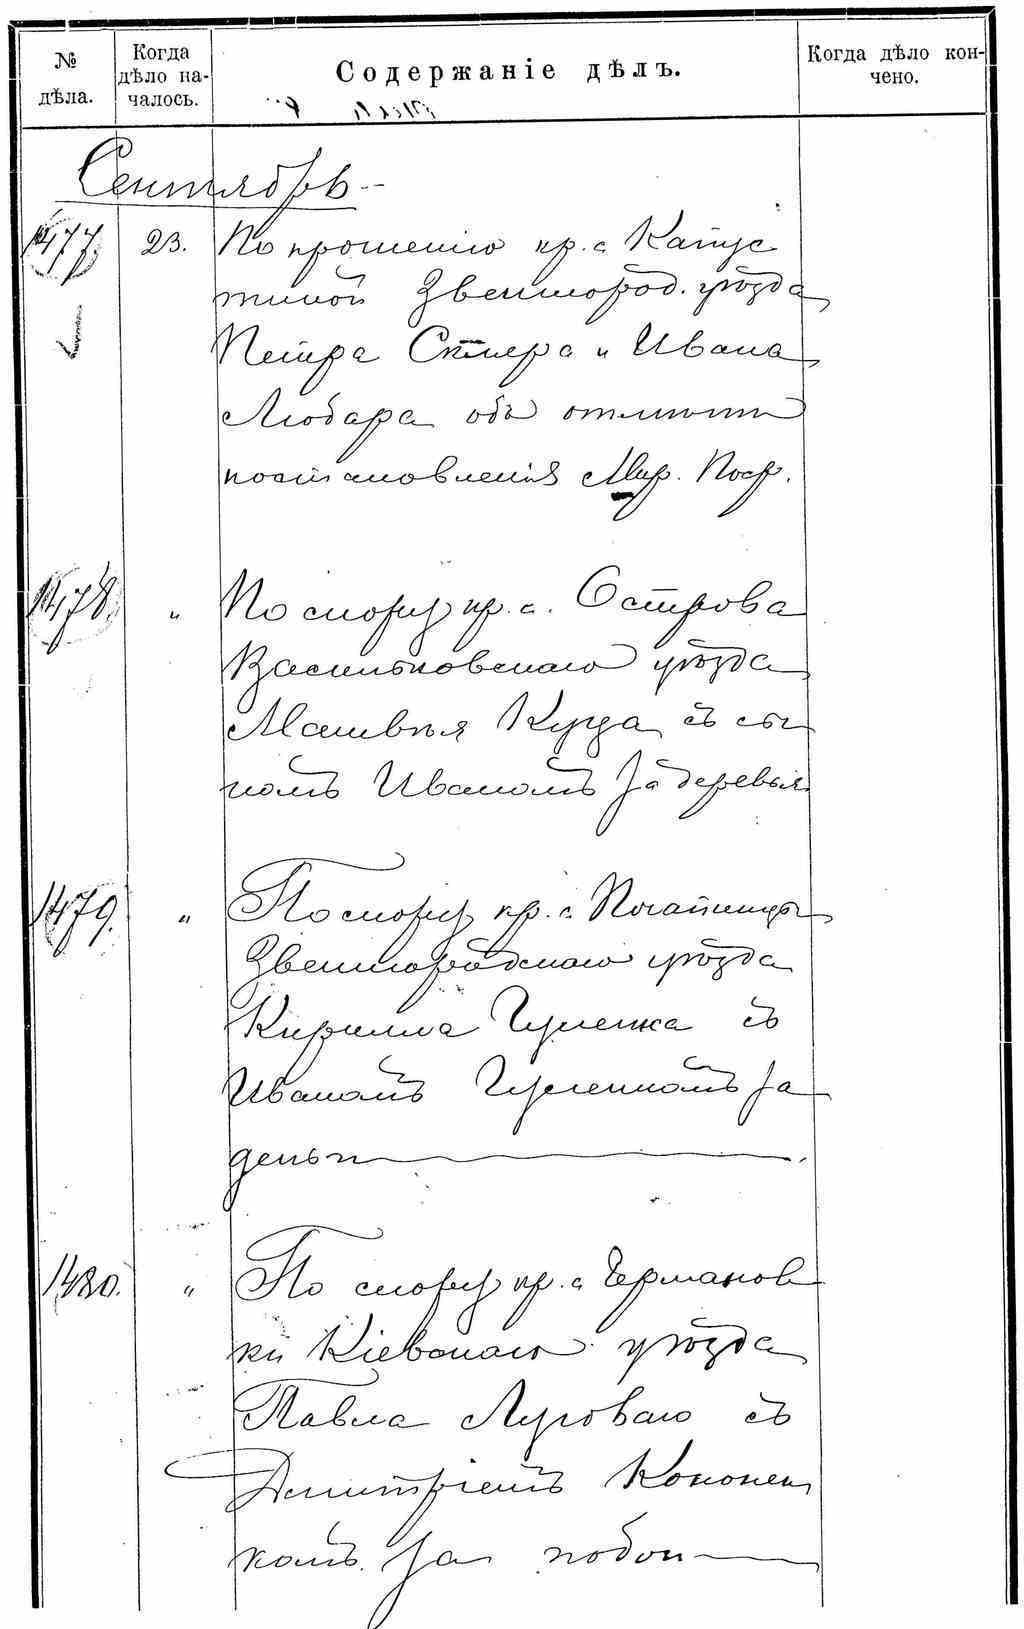 № дѣла.
Когда дѣло на-
чалось.
Содержаніе дѣлъ.
Когда дѣло кон-
чено.
Сентябрь
1477. 23. По прошенію кр. с. Капус
тиной Звенигород. уѣзда
Петра Скляра и Ивана
Любара объ отмѣнѣ
постановленія Мир. Поср.
1478. " По спору кр. с. Острова
Васильковскаго уѣзда
Матвѣя Куца съ сы
номъ Иваномъ за деревья
1479. " По спору кр. с.
Звенигородскаго уѣзда
Кирилла Гуленка съ
Иваномъ Гуленкомъ за
деньги
1480. " По спору кр. с. Германов
ки Кіевскаго уѣзда
Павла Луговаго съ
Дмитріемъ Кононен
комъ за побои